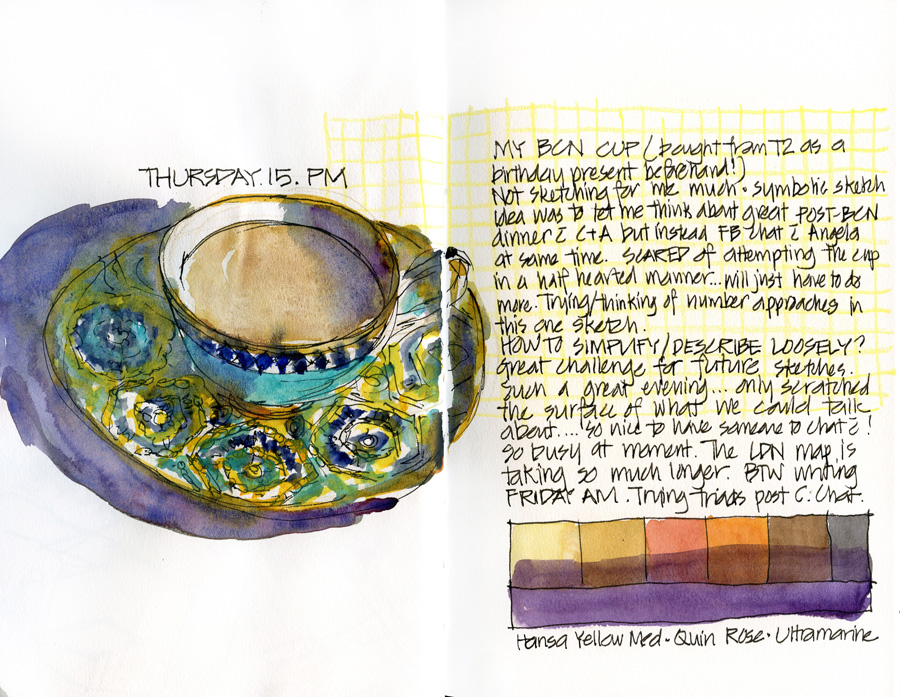 THURSDAY.15. PM
MY BCN CUP (bought from T2 as a
birthday present beforehand!)
Not sketching for me much. symbolic sketch
idea was to let me think about great POST-BCN
dinner c̄ C+A but instead FB chat c̄ Angela
at same time. SCARED of attempting the cup
in a half hearted manner...will just have to do
more. Trying/thinking of number approaches in
this one sketch.
HOW TO SIMPLIFY/DESCRIBE LOOSELY?
great challenge for future sketches.
Such a great evening... only scratched
the surface of what we could talk
about.... so nice to have someone to chat c̄!
So busy at moment. The LDN map is
taking so much longer. BTW writing
FRIDAY AM. Trying Triads post C. Chat.
Hansa Yellow Med • Quin Rose • Ultramarine